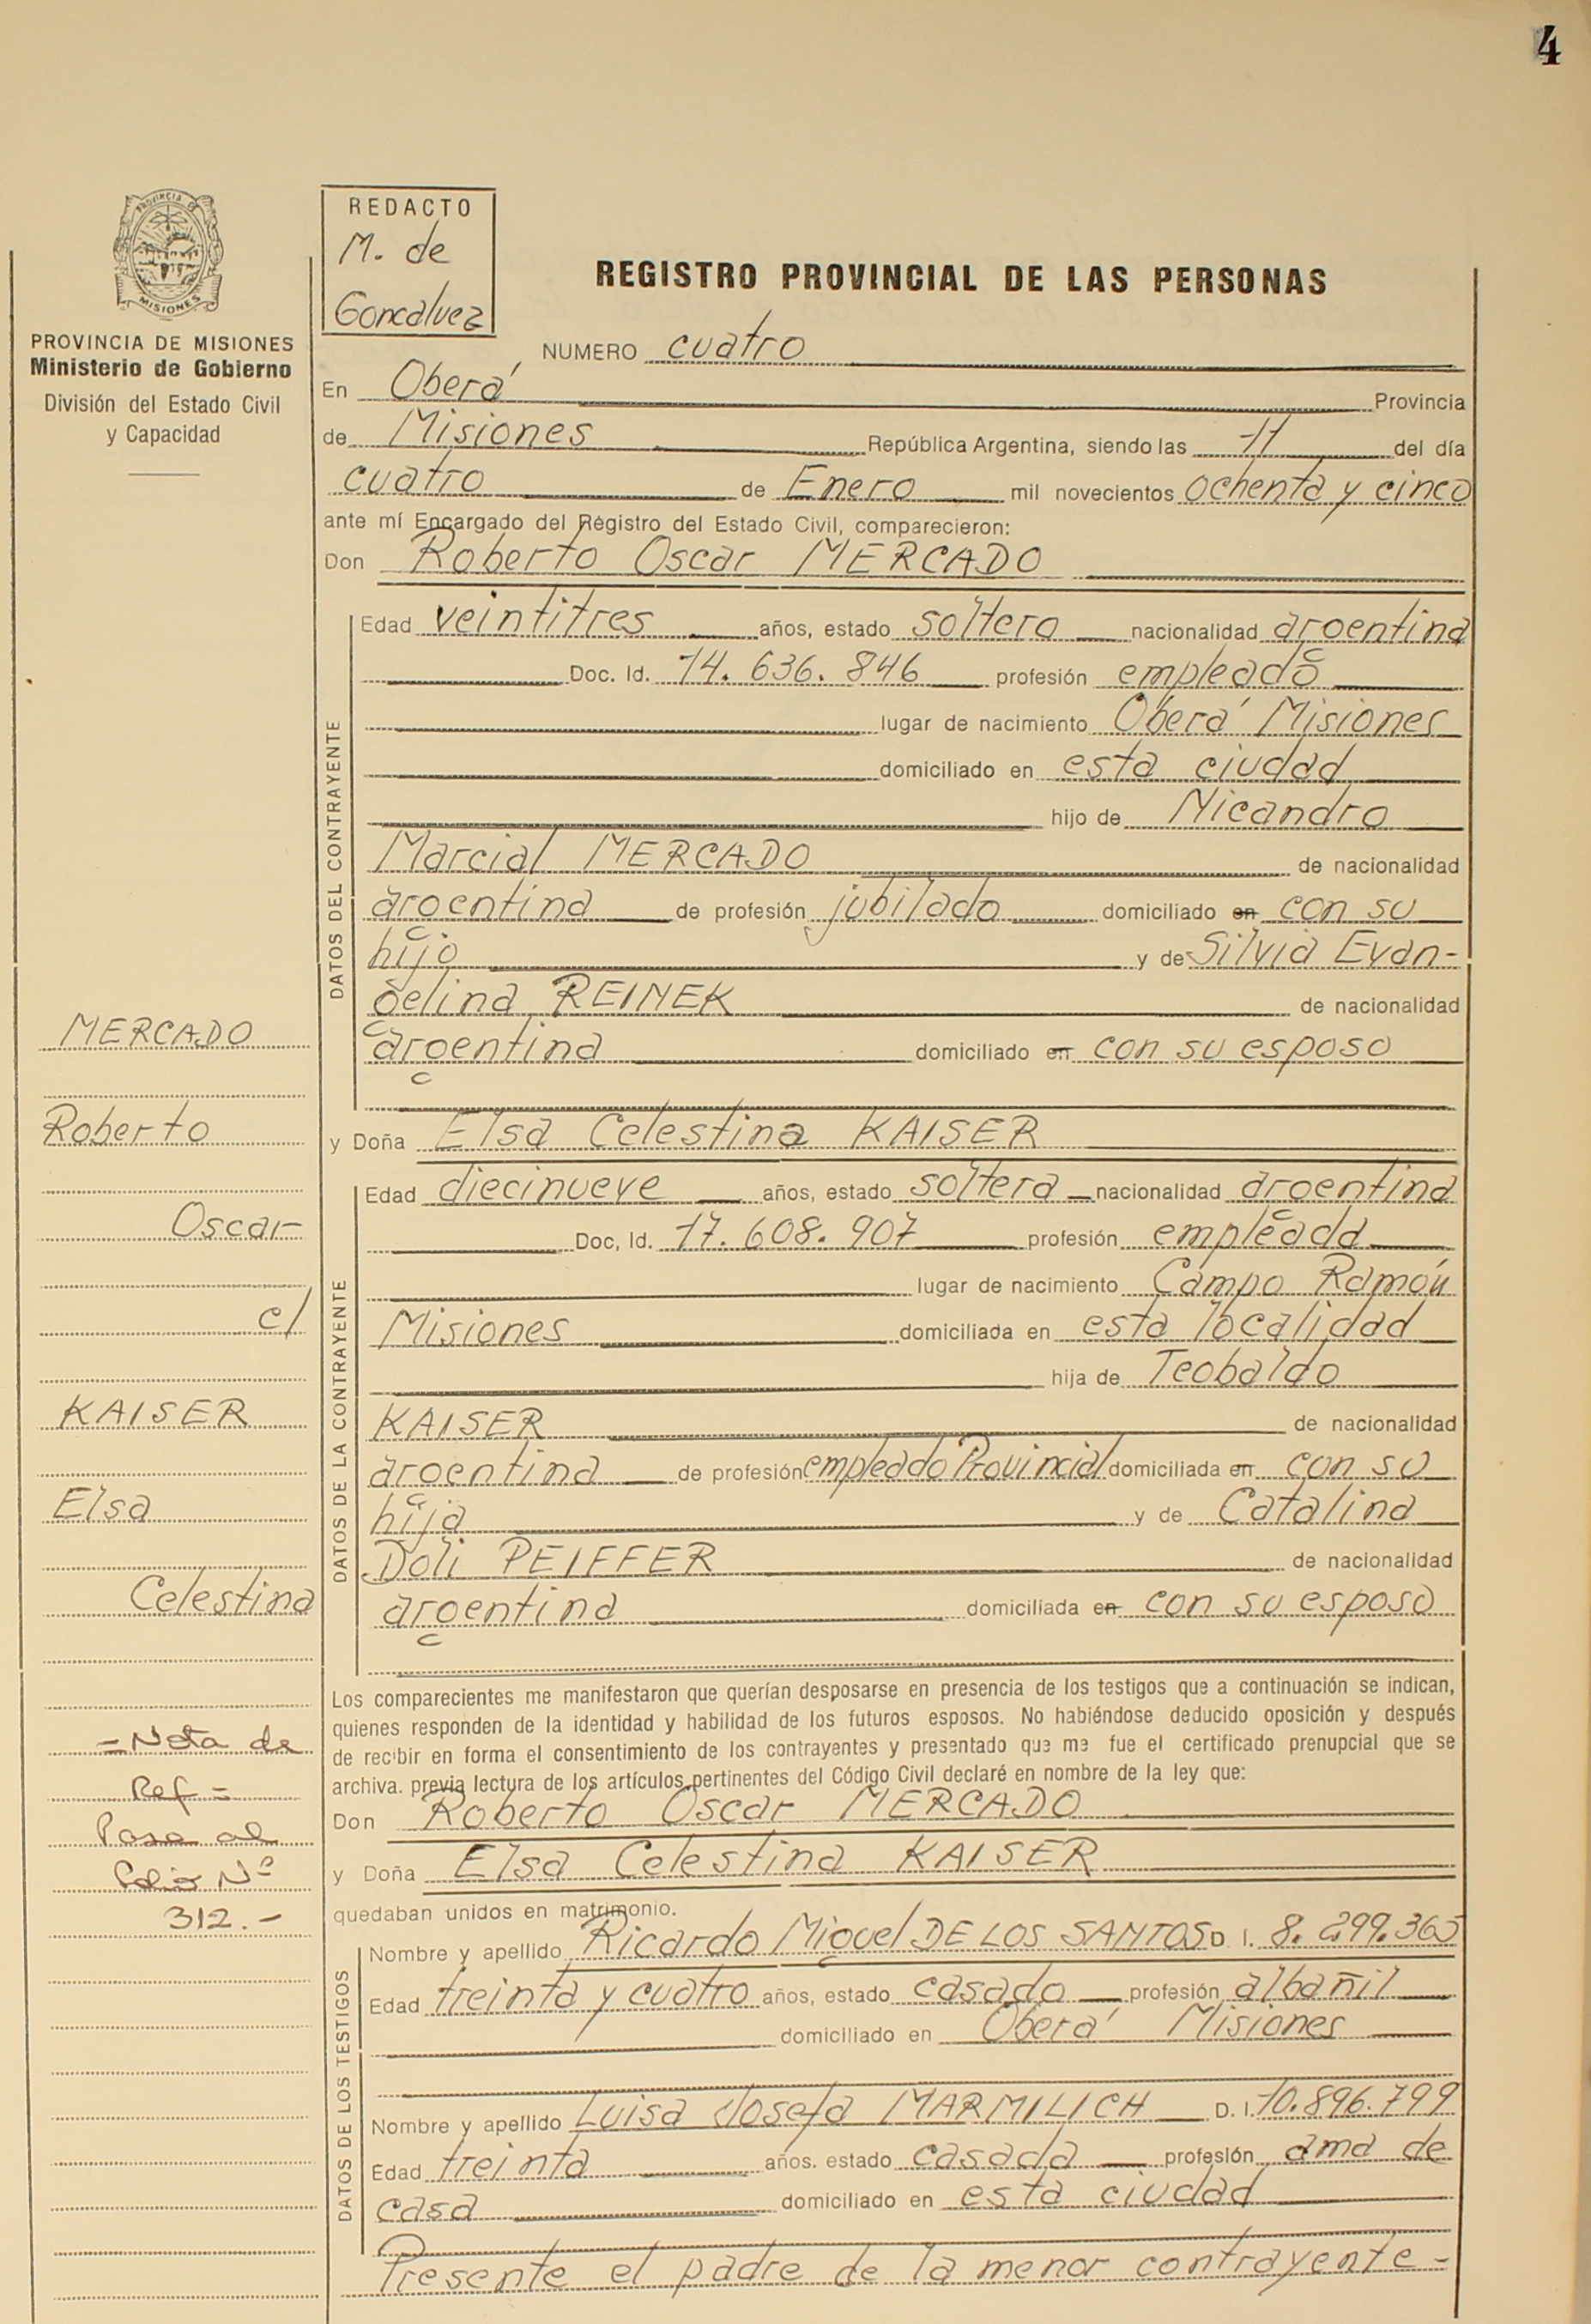 4
PROVINCIA DE
MISIONES
PROVINCIA DE MISIONES
Ministerio de Gobierno
División del Estado Civil
y Capacidad
MERCADO
Roberto
Oscar
c/
KAISER
Elsa
Celestina
= Nota de
Ref =
Pasa al
Folio Nº
312.-
REDACTO
M. de
Goncalvez
REGISTRO PROVINCIAL DE LAS PERSONAS
NUMERO cuatro
En Oberá Provincia
de Misiones República Argentina, siendo las 11 del día
cuatro de Enero mil novecientos ochenta y cinco
ante mí Encargado del Registro del Estado Civil, comparecieron:
Don Roberto Oscar MERCADO
DATOS DEL CONTRAYENTE
Edad veintitres años, estado soltero nacionalidad argentina
Doc. Id. 14.636.846 profesión empleado
lugar de nacimiento Oberá Misiones
domiciliado en esta ciudad
hijo de Nicandro
Marcial MERCADO de nacionalidad
argentina de profesión jubilado domiciliado en con su
hijo y de Silvia Evan-
gelina REINEK de nacionalidad
argentina domiciliado en con su esposo
y Doña Elsa Celestina KAISER
DATOS DE LA CONTRAYENTE
Edad diecinueve años, estado soltera nacionalidad argentina
Doc, Id. 17.608.907 profesión empleada
lugar de nacimiento Campo Ramón
Misiones domiciliada en esta localidad
hija de Teobaldo
KAISER de nacionalidad
argentina de profesión empleado Provincial domiciliada en con su
hija y de Catalina
Doli PEIFFER de nacionalidad
argentina domiciliada en con su esposo
Los comparecientes me manifestaron que querían desposarse en presencia de los testigos que a continuación se indican,
quienes responden de la identidad y habilidad de los futuros esposos. No habiéndose deducido oposición y después
de recibir en forma el consentimiento de los contrayentes y presentado que me fue el certificado prenupcial que se
archiva. previa lectura de los artículos pertinentes del Código Civil declaré en nombre de la ley que:
Don Roberto Oscar MERCADO
y Doña Elsa Celestina KAISER
quedaban unidos en matrimonio.
DATOS DE LOS TESTIGOS
Nombre y apellido Ricardo Miguel DE LOS SANTOS D. I. 8.299.365
Edad treinta y cuatro años, estado casado profesión albañil
domiciliado en Oberá Misiones
Nombre y apellido Luisa Josefa MARMILICH D. I. 10.896.799
Edad treinta años. estado casada profesión ama de
casa domiciliado en esta ciudad
Presente el padre de la menor contrayente=